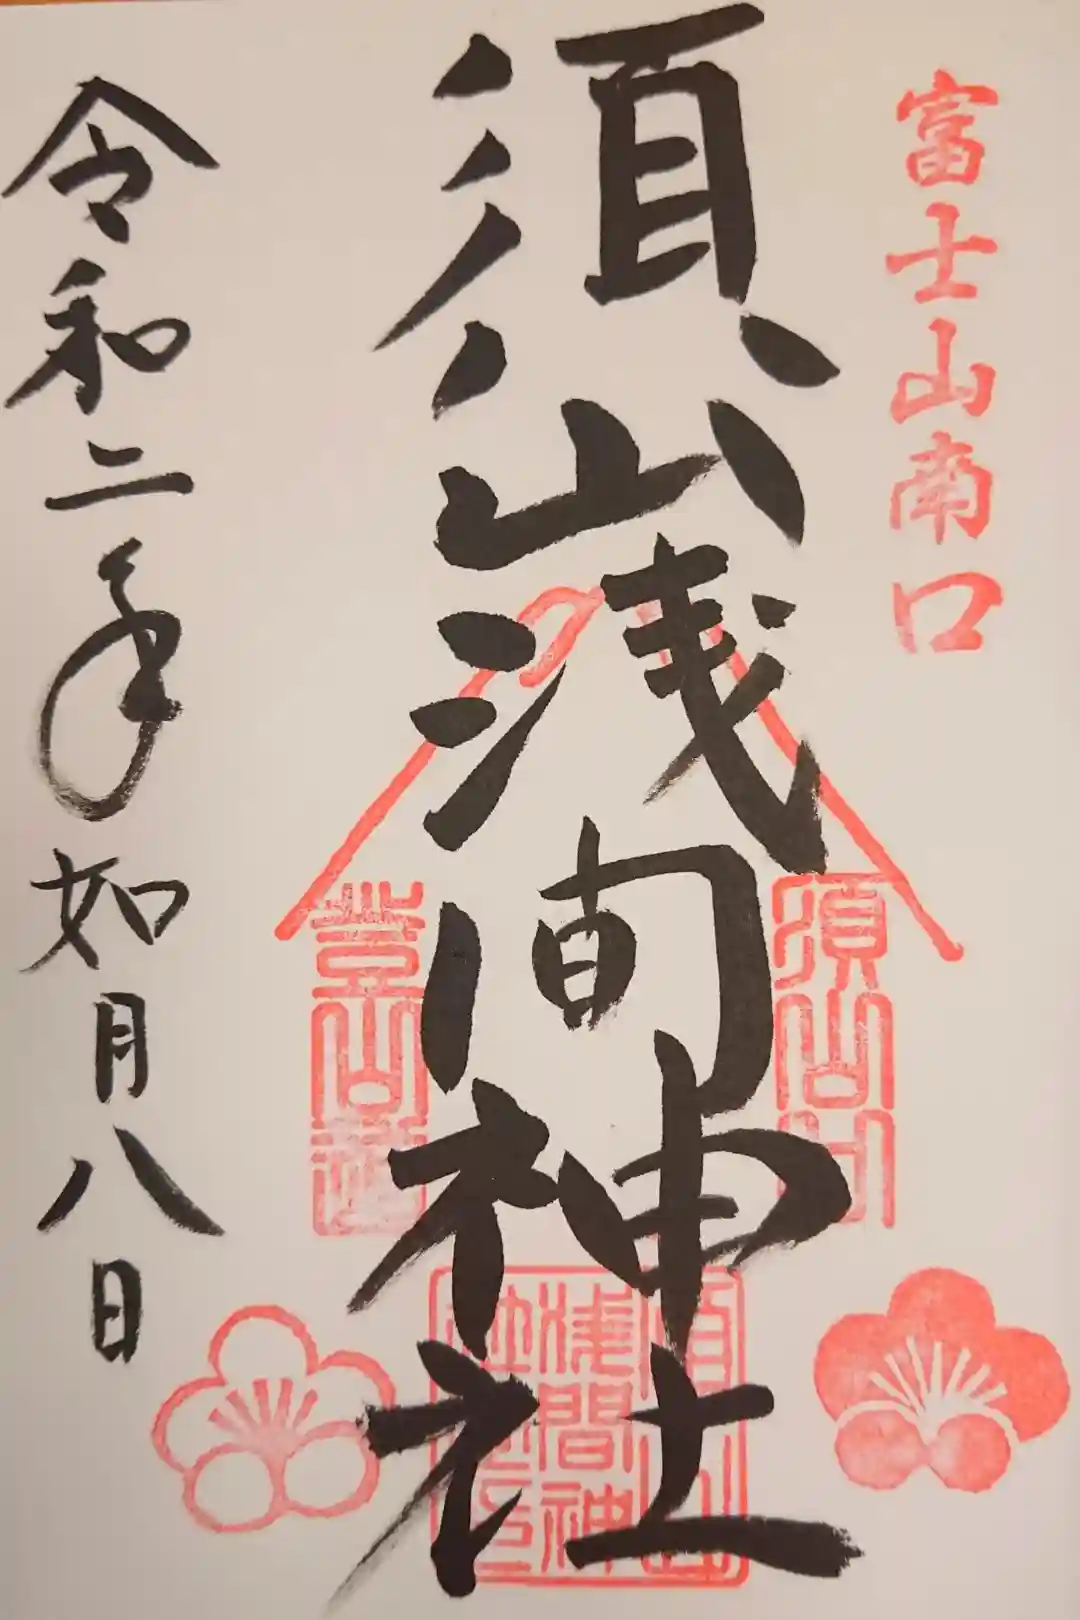 富士山南口
須山浅间神社
令和二年如月八日
須山口
登山道
須山
浅間神
社之印